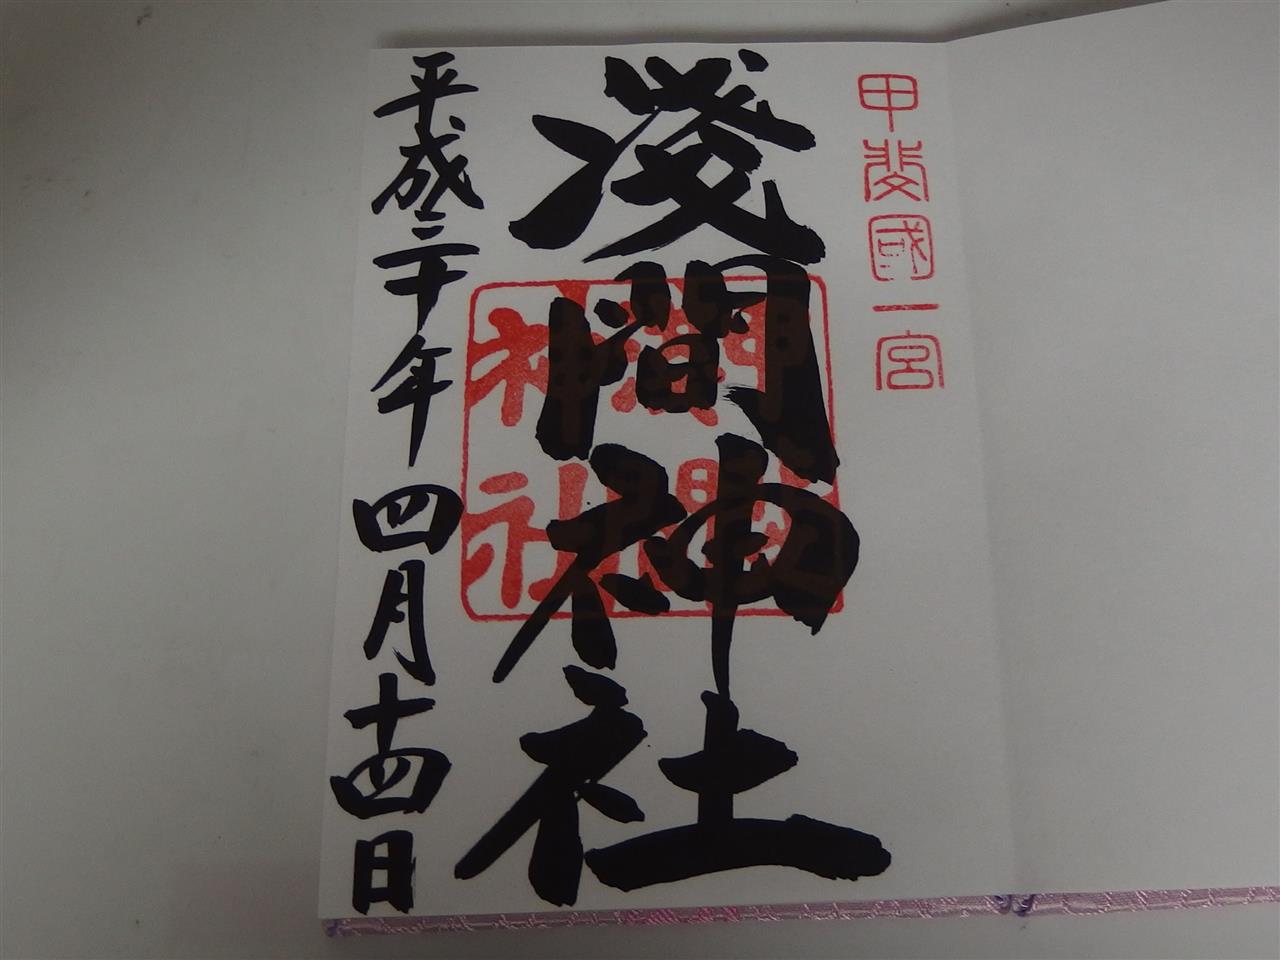 甲斐國一宮
淺間神社
淺間
神社
平成三十年四月十四日